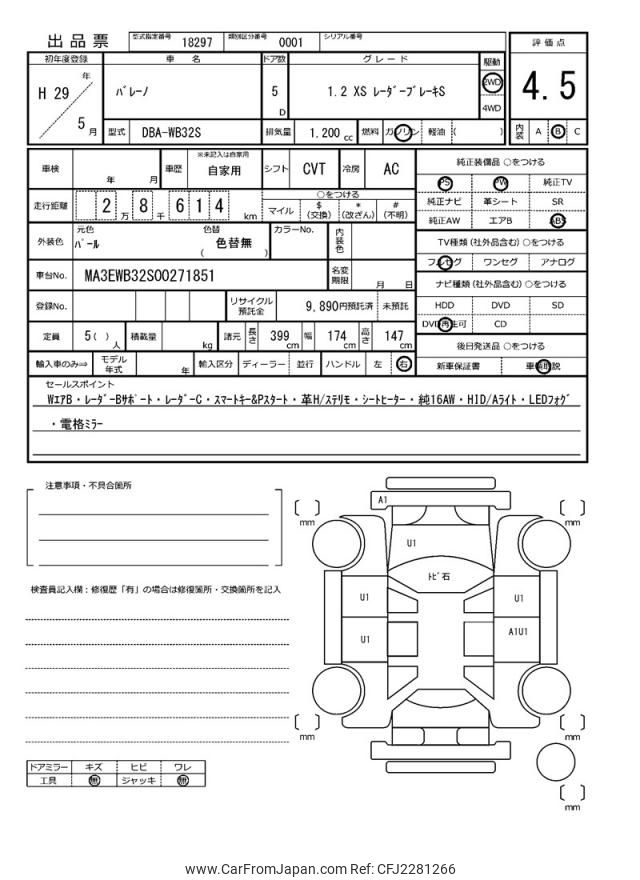 出品票 型式指定番号 18297 類別区分番号 0001 シリアル番号
評価点
初年度登録 車名 ドア数 グレード 駆動
H 29 年 バレーノ 5 D 1.2 XS レーダーブレーキS 2WD 4.5
5 月 4WD
型式 DBA-WB32S 排気量 1,200 cc 燃料 ガソリン 軽油 ( ) 内装 A B C
車検 年 月 車歴 ※未記入は自家用 自家用 シフト CVT 冷房 AC
純正装備品 ○をつける
PS PW 純正TV
純正ナビ 革シート SR
純正AW エアB ABS
走行距離 2 万 8 千 6 1 4 km
○をつける
マイル $(交換) *(改ざん) #(不明)
TV種類(社外品含む) ○をつける
フルセグ ワンセグ アナログ
外装色 元色 パール 色替 色替無 ( ) カラーNo. 内装色
車台No. MA3EWB32S00271851 名変期限 月 日
ナビ種類(社外品含む) ○をつける
HDD DVD SD
DVD再生可 CD
登録No. リサイクル預託金 9,890円預託済 未預託
定員 5( ) 人 積載量 kg 諸元 長さ 399 cm 幅 174 cm 高さ 147 cm
後日発送品 ○をつける
新車保証書 車輌取説
輸入車のみ⇒ モデル年式 年 輸入区分 ディーラー 並行 ハンドル 左 右
セールスポイント
WエアB・レーダーBサポート・レーダーC・スマートキー&Pスタート・革H/ステリモ・シートヒーター・純16AW・HID/Aライト・LEDフォグ
・電格ミラー
注意事項・不具合箇所
検査員記入欄:修復歴「有」の場合は修復箇所・交換箇所を記入
A1
mm mm
U1
トビ石
U1 U1
U1 A1U1
mm mm
mm
ドアミラー キズ ヒビ ワレ
工具 無 ジャッキ 無
www.CarFromJapan.com Ref: CFJ2281266